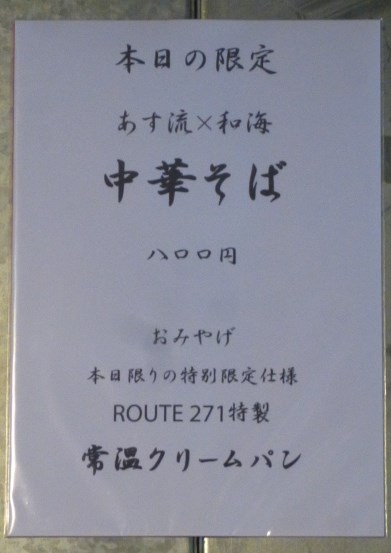 本日の限定
あす流×和海
中華そば
八〇〇円
おみやげ
本日限りの特別限定仕様
ROUTE 271特製
常温クリームパン